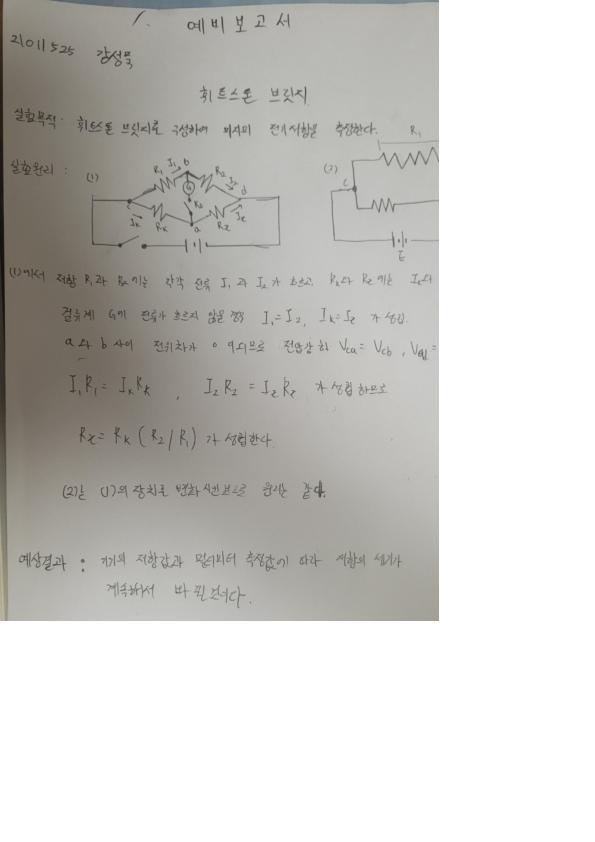 1.
예비보고서
21011525 강성묵
휘트스톤 브릿지
실험목적 : 휘트스톤 브릿지를 구성하여 미지의 전기저항을 측정한다.
실험원리 :
(1) R₁ I₁ b R₂ I₂ G R₀ c d Iₖ Rₖ a R_z I_z
(2) R₁ c E
(1)에서 저항 R₁과 R₂에는 각각 전류 I₁과 I₂가 흐르고, Rₖ와 R_z에는 Iₖ와
검류계 G에 전류가 흐르지 않을 경우 I₁=I₂, Iₖ=I_z 가 성립.
a와 b 사이 전위차가 0 이므로 전압강하 Vca = Vcb ,
I₁R₁ = IₖRₖ , I₂R₂ = I_zR_z 가 성립하므로
R_z = Rₖ (R₂/R₁) 가 성립한다.
(2)는 (1)의 장치로 변화시킨 것으로 원리는 같다.
예상결과 : 기기의 저항값과 멀티미터 측정값에 따라 저항의 세기가
계속해서 바뀔 것이다.